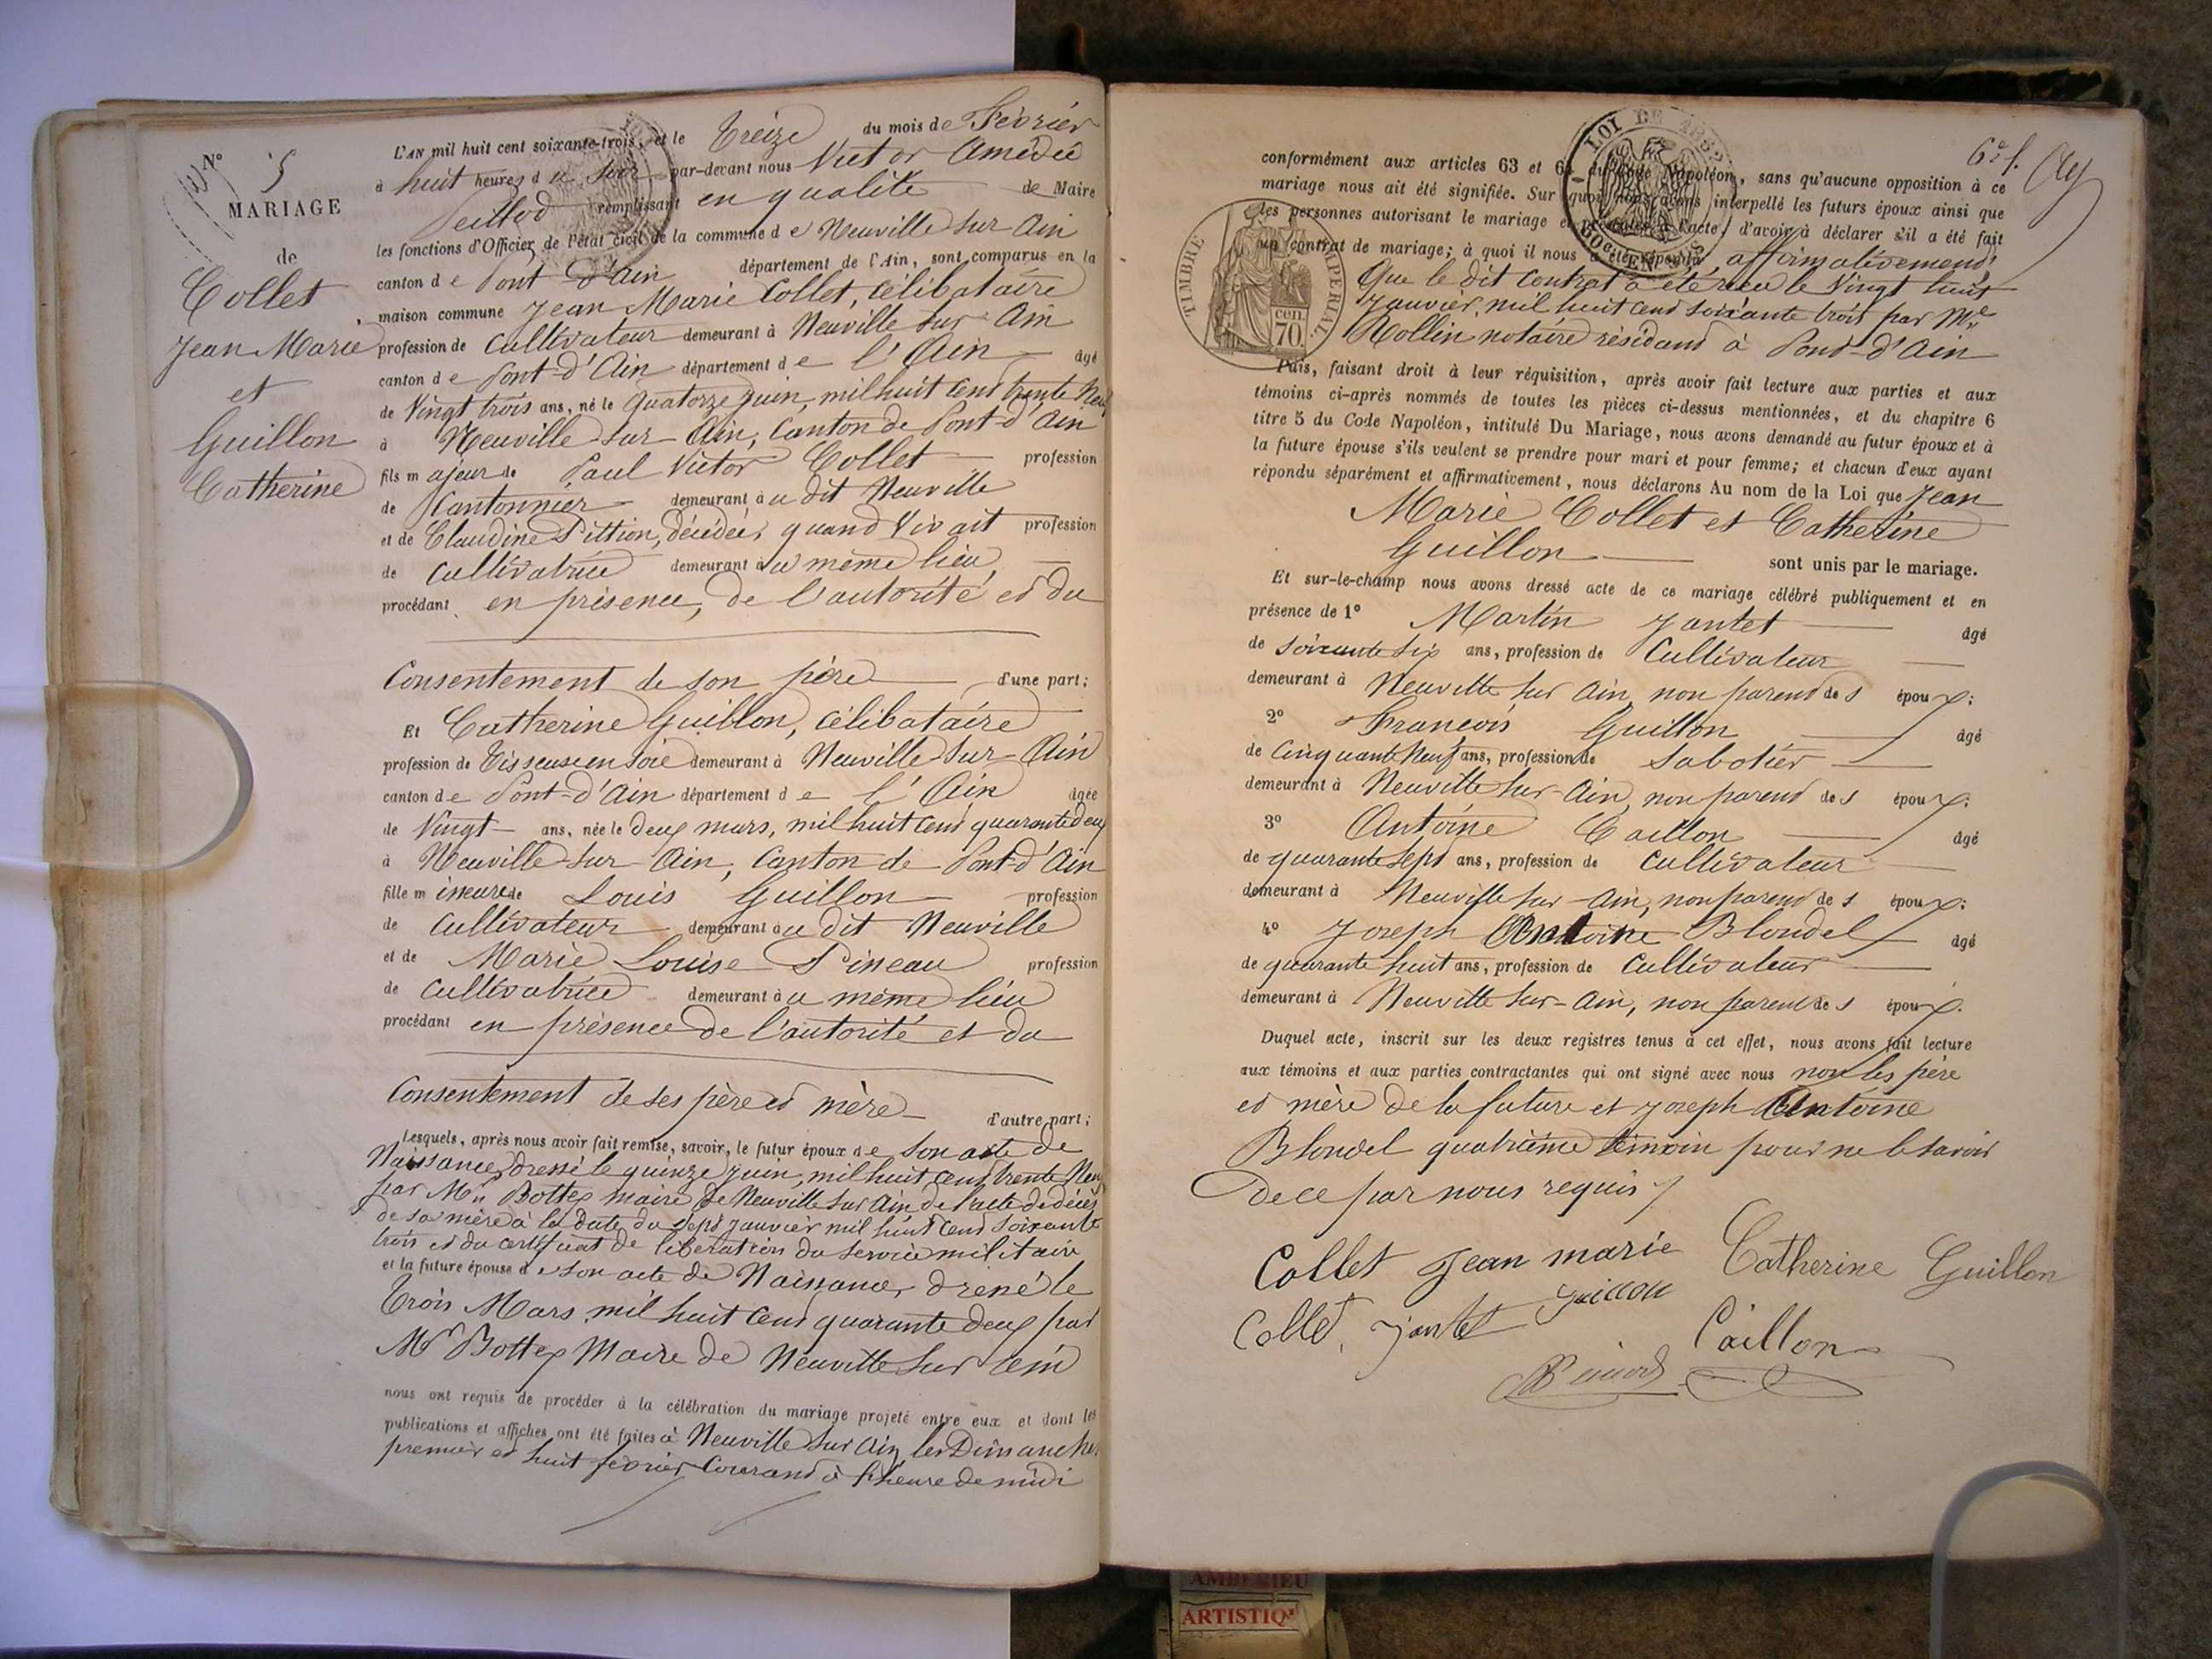 N° 5
MARIAGE
de
Collet
Jean Marie
et
Guillon
Catherine
L'AN mil huit cent soixante-trois, et le Treize du mois de Février
à huit heures du soir par-devant nous Victor Amédée
remplissant en qualité de Maire
les fonctions d'Officier de l'état civil de la commune de Neuville sur Ain
canton de Pont d'Ain département de l'Ain, sont comparus en la
maison commune Jean Marie Collet, célibataire
profession de Cultivateur demeurant à Neuville sur Ain
canton de Pont-d'Ain département de l'Ain âgé
de Vingt trois ans, né le Quatorze juin, mil huit cent trente Neuf
à Neuville sur Ain, Canton de Pont-d'Ain
fils majeur de Paul Victor Collet profession
de Cantonnier demeurant au dit Neuville
et de Claudine Pittion, décédée, quand Vivait profession
de Cultivatrice demeurant au même lieu
procédant en présence, de l'autorité et du
Consentement de son père d'une part;
Et Catherine Guillon, célibataire
profession de Tisseuse en soie demeurant à Neuville-sur-Ain
canton de Pont-d'Ain département de l'Ain âgée
de Vingt ans, née le deux mars, mil huit cent quarante deux
à Neuville-sur Ain, Canton de Pont-d'Ain
fille mineure de Louis Guillon profession
de Cultivateur demeurant au dit Neuville
et de Marie Louise Pineau profession
de Cultivatrice demeurant au même lieu
procédant en présence de l'autorité et du
Consentement de ses père et mère d'autre part;
Lesquels, après nous avoir fait remise, savoir, le futur époux de son acte de
Naissance, dressé le quinze juin, mil huit cent trente Neuf
par Mr Bottex maire de Neuville sur Ain de l'acte de décès
de sa mère à la date du sept janvier mil huit cent soixante
trois et du certificat de libération du service militaire
et la future épouse de son acte de Naissance, dressé le
Trois Mars mil huit cent quarante deux par
Mr Bottex Maire de Neuville sur Ain
nous ont requis de procéder à la célébration du mariage projeté entre eux et dont les
publications et affiches ont été faites à Neuville sur Ain, les Dimanches
premier et huit février Courant à l'heure de midi
LOI DE
6e f.
conformément aux articles 63 et 64 du Code Napoléon, sans qu'aucune opposition à ce
mariage nous ait été signifiée. Sur quoi nous avons interpellé les futurs époux ainsi que
les personnes autorisant le mariage et présentes à l'acte, d'avoir à déclarer s'il a été fait
un contrat de mariage; à quoi il nous a été répondu affirmativement
TIMBRE IMPÉRIAL
70 cen
Que le dit contrat a été reçu le Vingt huit
Janvier, mil huit cent soixante trois par Me
Rollin notaire résidant à Pont-d'Ain
Puis, faisant droit à leur réquisition, après avoir fait lecture aux parties et aux
témoins ci-après nommés de toutes les pièces ci-dessus mentionnées, et du chapitre 6
titre 5 du Code Napoléon, intitulé Du Mariage, nous avons demandé au futur époux et à
la future épouse s'ils veulent se prendre pour mari et pour femme; et chacun d'eux ayant
répondu séparément et affirmativement, nous déclarons Au nom de la Loi que Jean
Marie Collet et Catherine
Guillon sont unis par le mariage.
Et sur-le-champ nous avons dressé acte de ce mariage célébré publiquement et en
présence de 1° Martin Jantet âgé
de soixante six ans, profession de Cultivateur
demeurant à Neuville sur Ain, non parent des époux;
2° Francois Guillon âgé
de Cinquante Neuf ans, profession de Sabotier
demeurant à Neuville sur-Ain, non parent des époux;
3° Antoine Caillon âgé
de quarante sept ans, profession de Cultivateur
demeurant à Neuville sur-Ain, non parent des époux;
4° Joseph Antoine Blondel âgé
de quarante huit ans, profession de Cultivateur
demeurant à Neuville sur-Ain, non parent des époux.
Duquel acte, inscrit sur les deux registres tenus à cet effet, nous avons fait lecture
aux témoins et aux parties contractantes qui ont signé avec nous non les père
et mère de la future et Joseph Antoine
Blondel quatrième témoin pour ne le savoir
de ce par nous requis
Collet Jean marie Catherine Guillon
Collet Jantet Guillon Caillon
AMBERIEU
ARTISTIQ